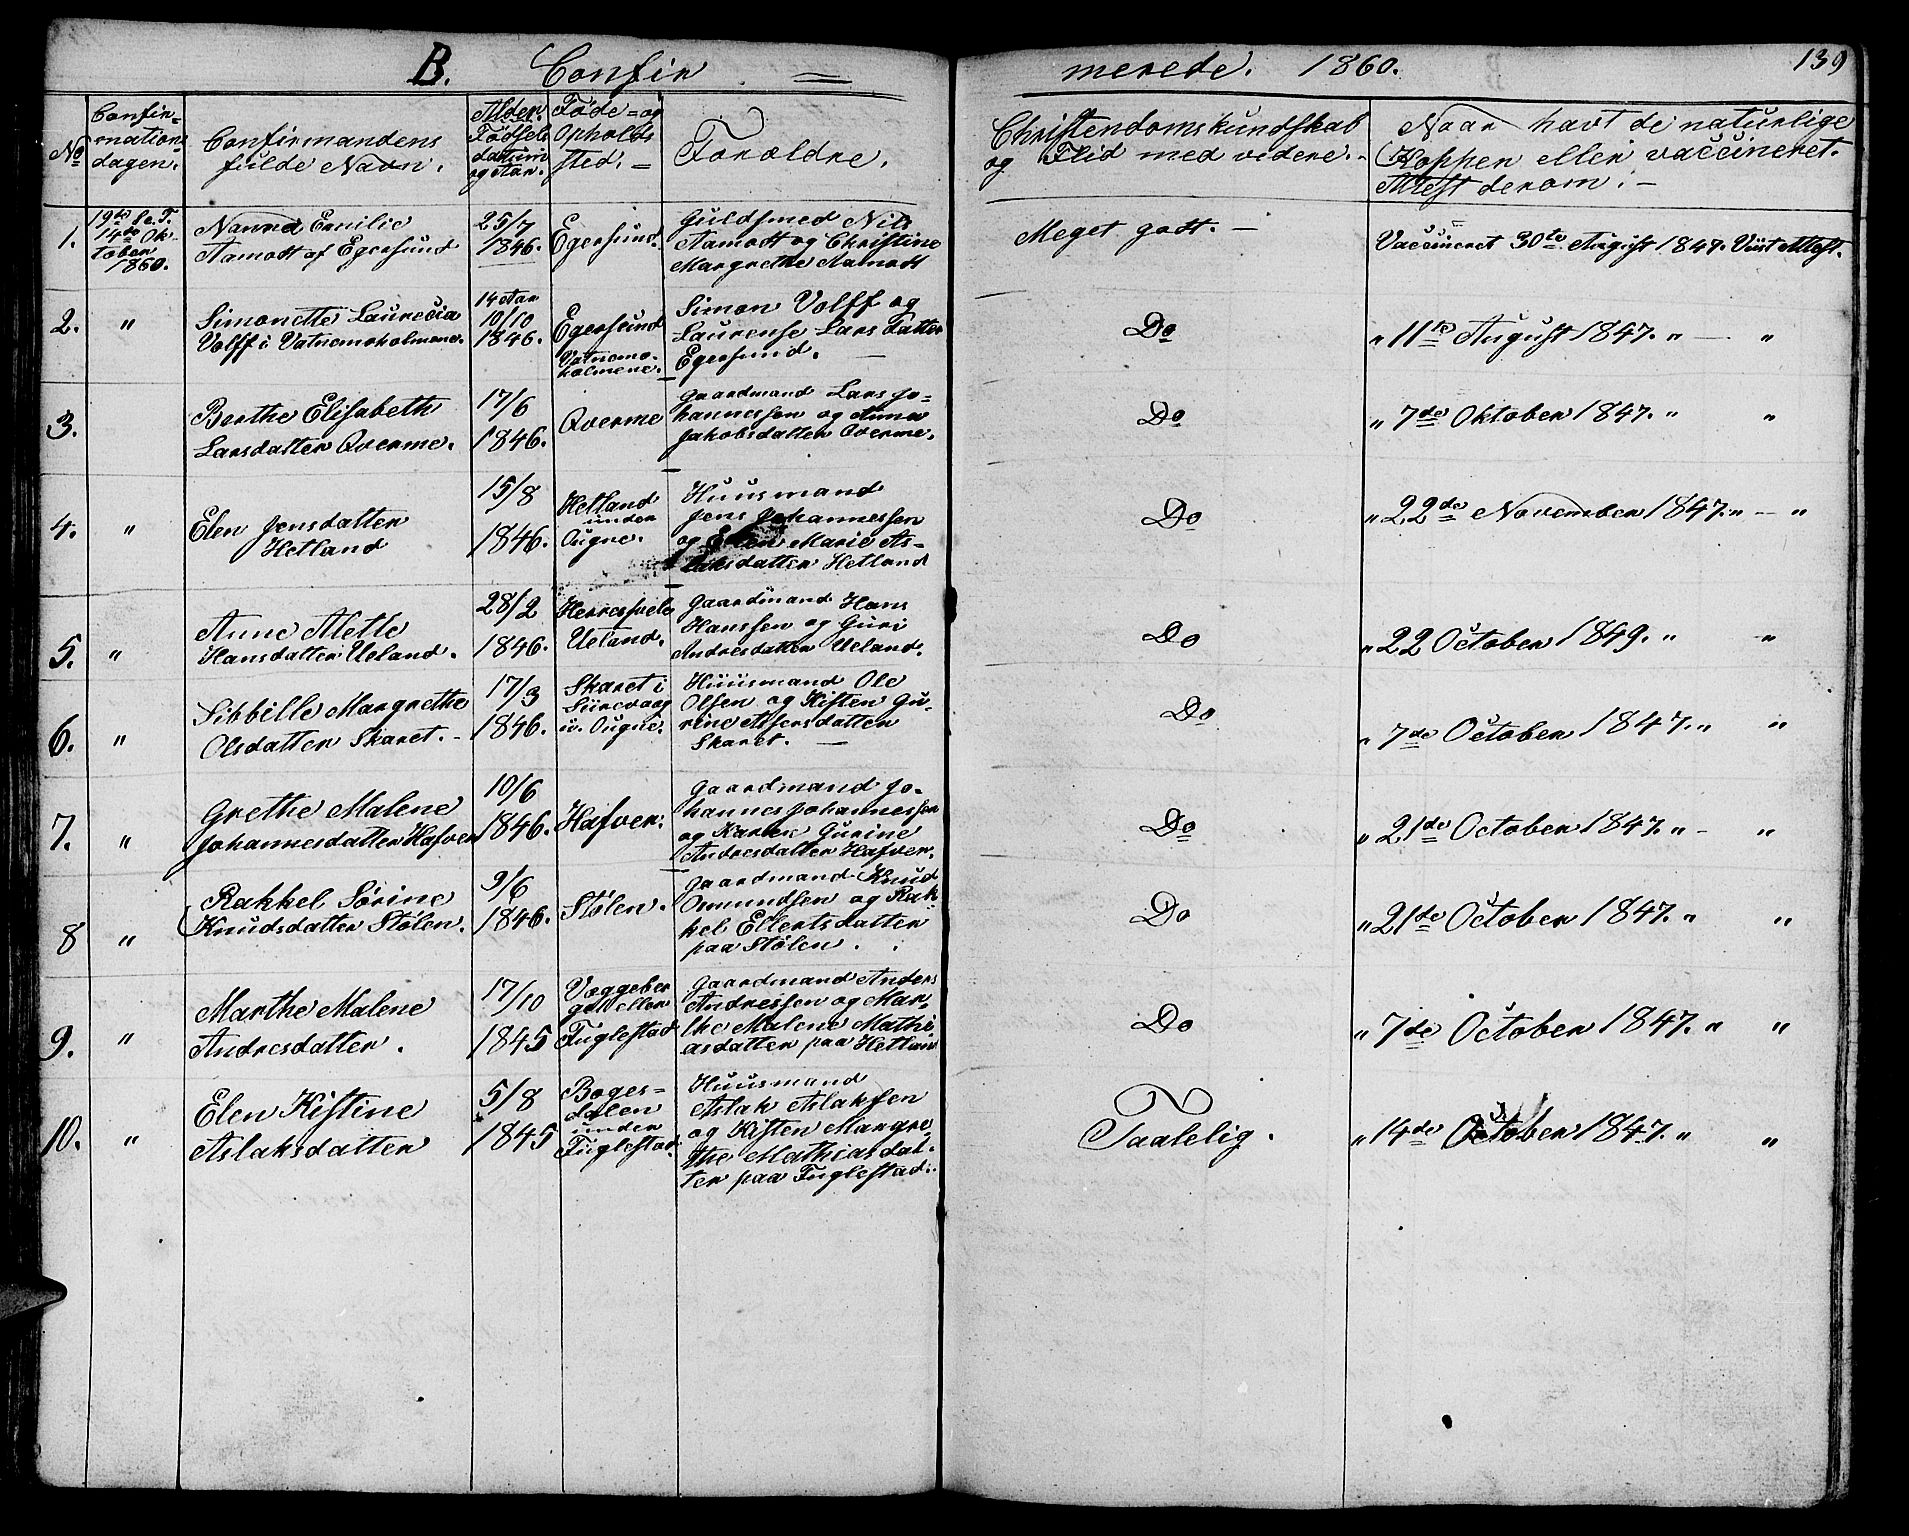 B. Confir =
merede. 1860.
139
No
Confir-
mations
dagen.
Confirmandens
fulde Navn.
Alder.
Fødsels
datum
og Aar.
Føde= og
Opholds
sted. =
Forældre.
Christendomskundskab
og Flid med videre. -
Naar havt de naturlige
Kopper eller vaccineret.
Attest derom. -
1.
19de S. e. T.
14de Ok-
tober
1860.
Nanna Emilie
Aamodt af Egersund
25/7
1846.
Egersund.
Guldsmed Nils
Aamodt og Christine
Margrethe Aamodt
Meget godt. -
Vaccineret 30te August 1847. Viist Attest.
2.
"
Simonette Laurecia
Volff i Vatnemoholmene.
14 Aar
10/10
1846.
Egersund
Vatnemo-
holmene.
Simon Volff og
Laurense Lars Datter
Egersund. -
Do
" 11te August 1847. " - "
3.
Berthe Elisabeth
Larsdatter Qverme.
17/6
1846.
Qverme
Gaardmand Lars Jo-
hannessen og Anna
Jakobsdatter Qverme.
Do
" 7de Oktober 1847. " "
4.
"
Elen Jensdatter
Hetland
15/8
1846.
Hetland
under
Ougne.
Huusmand
Jens Johannessen
og Elen Marie As-
laksdatter Hetland
Do
" 22de November 1847. " - "
5.
"
Anne Mette
Hansdatter Ueland.
28/2
1846.
Ueland.
Gaardmand Hans
Hanssen og Guri
Andresdatter Ueland.
Do
" 22 October 1849. " "
6.
"
Sibbille Margrethe
Olsdatter Skaret. -
17/3
1846.
Skaret i
Siirevaag
u. Ougne.
Huusmand Ole
Olsen og Kisten Gu-
rine Assersdatter
Skaret. -
Do
" 7de October 1847. " "
7.
"
Grethe Malene
Johannesdatter Hafver
10/6
1846.
Hafver.
Gaardmand Jo-
hannes Johannessen
og Karen Gurine
Andresdatter Hafver.
Do
" 21de October 1847. " - "
8
"
Rakkel Sørine
Knudsdatter Stølen.
9/6
1846.
Stølen.
Gaardmand Knud
Omundsen og Rak-
kel Ellertsdatter
paa Stølen.
Do
" 21de October 1847. " "
9.
"
Marthe Malene
Andresdatter.
17/10
1845
Væggeber
get eller
Fuglestad
Gaardmand Anders
Andressen og Mar-
the Malene Mathi-
asdatter paa Hetland
Do
" 7de October 1847. " "
10.
"
Elen Kistine
Aslaksdatter
5/8
1845
Boges=
dalen
under
Fuglestad
Huusmand
Aslak Aslaksen
og Kisten Margre-
the Mathiasdat-
ter paa Fuglestad.
Taalelig.
" 14de October 1847. " "